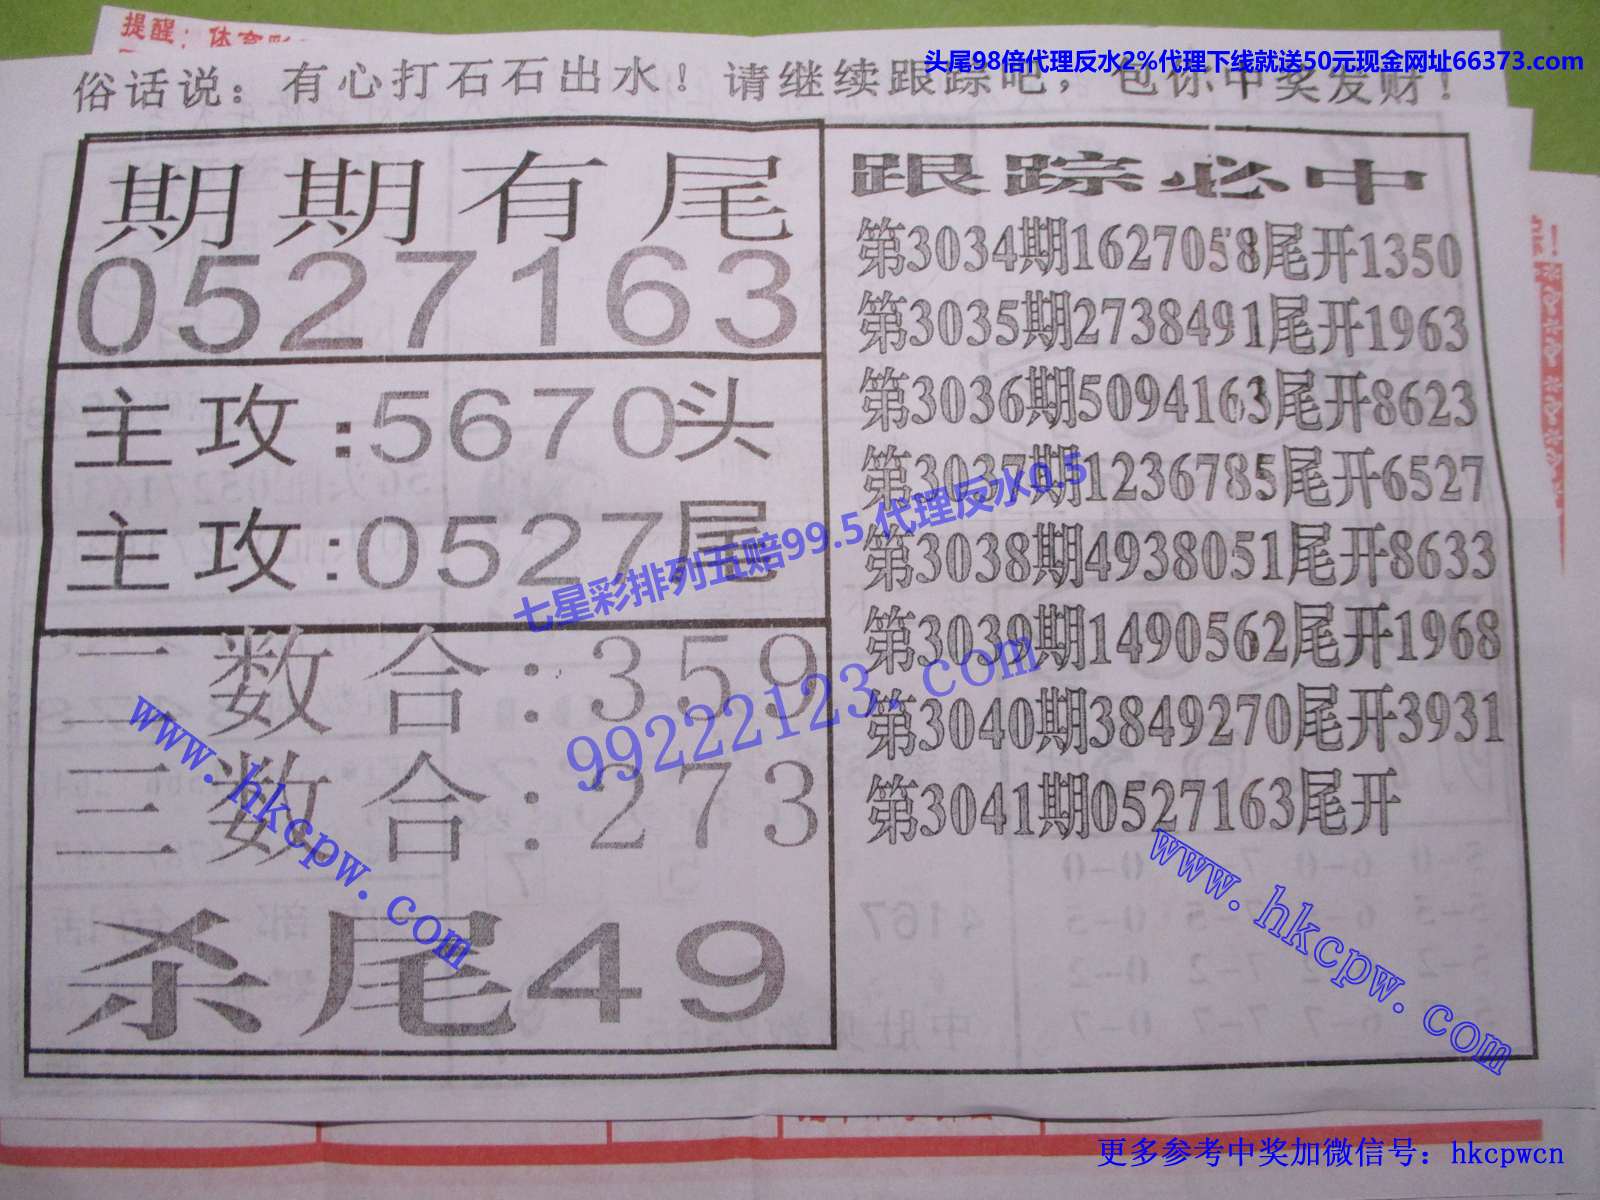 提醒：体育彩
头尾98倍代理反水2%代理下线就送50元现金网址66373.com
俗话说：有心打石石出水！请继续跟踪吧，包你中奖发财！
期期有尾
0527163
主攻:5670头
主攻:0527尾
二数合:359
三数合:273
杀尾49
跟踪必中
第3034期1627058尾开1350
第3035期2738491尾开1963
第3036期5094163尾开8623
第3037期1236785尾开6527
第3038期4938051尾开8633
第3039期1490562尾开1968
第3040期3849270尾开3931
第3041期0527163尾开
七星彩排列五赔99.5 代理反水0.5
99222123.com
www.hkcpw.com
www.hkcpw.com
更多参考中奖加微信号：hkcpwcn